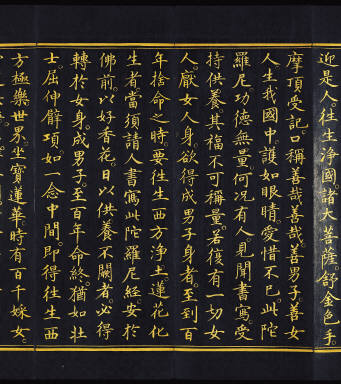 迎是人往生淨國諸大菩薩舒金色手
摩頂受記口稱善哉善哉善男子善女
人生我國中護如眼睛愛惜不已此陀
羅尼功德無量何況有人見聞書寫受
持供養其福不可稱量若復有一切女
人厭女人身欲得成男子身者至到百
年捨命之時要往生西方淨土蓮花化
生者當須請人書寫此陀羅尼經安於
佛前以好香花日以供養不闕者必得
轉於女身成男子至百年命終猶如壯
士屈伸臂項如一念中間即得往生西
方極樂世界坐寶蓮華時有百千婇女